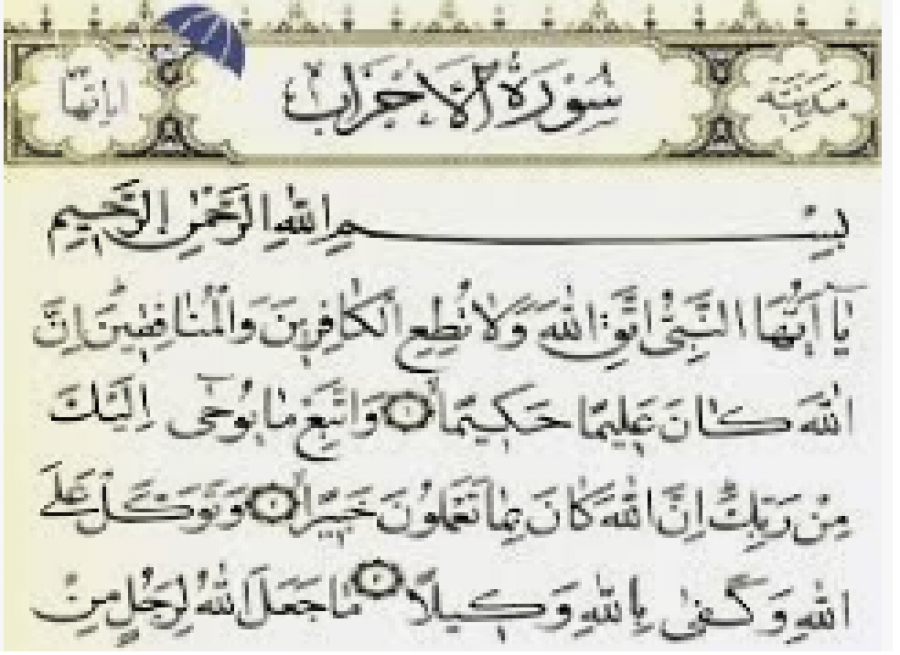 مدنية سُورَةُ الْاَحْزَابِ
بِسْمِ اللّٰهِ الرَّحْمٰنِ الرَّحِيمِ
يَٓا اَيُّهَا النَّبِيُّ اتَّقِ اللّٰهَ وَلَا تُطِعِ الْكَافِرِينَ وَالْمُنَافِقِينَۜ اِنَّ
اللّٰهَ كَانَ عَلِيمًا حَكِيمًاۙ ١ وَاتَّبِعْ مَا يُوحٰٓى اِلَيْكَ
مِنْ رَبِّكَۜ اِنَّ اللّٰهَ كَانَ بِمَا تَعْمَلُونَ خَبِيرًاۙ ٢ وَتَوَكَّلْ عَلَى
اللّٰهِۜ وَكَفٰى بِاللّٰهِ وَكِيلًا ٣ مَا جَعَلَ اللّٰهُ لِرَجُلٍ مِنْ